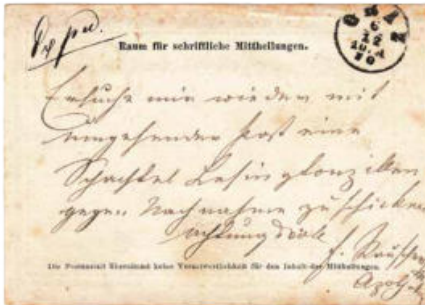 GRAZ
6
12
10.A
70
Raum für schriftliche Mittheilungen.
Ersuche mir wieder mit
eingehender Post eine
Schachtel
gegen Nachnahme zu schicken
achtungsvoll
Die Postanstalt übernimmt keine Verantwortlichkeit für den Inhalt der Mittheilungen.